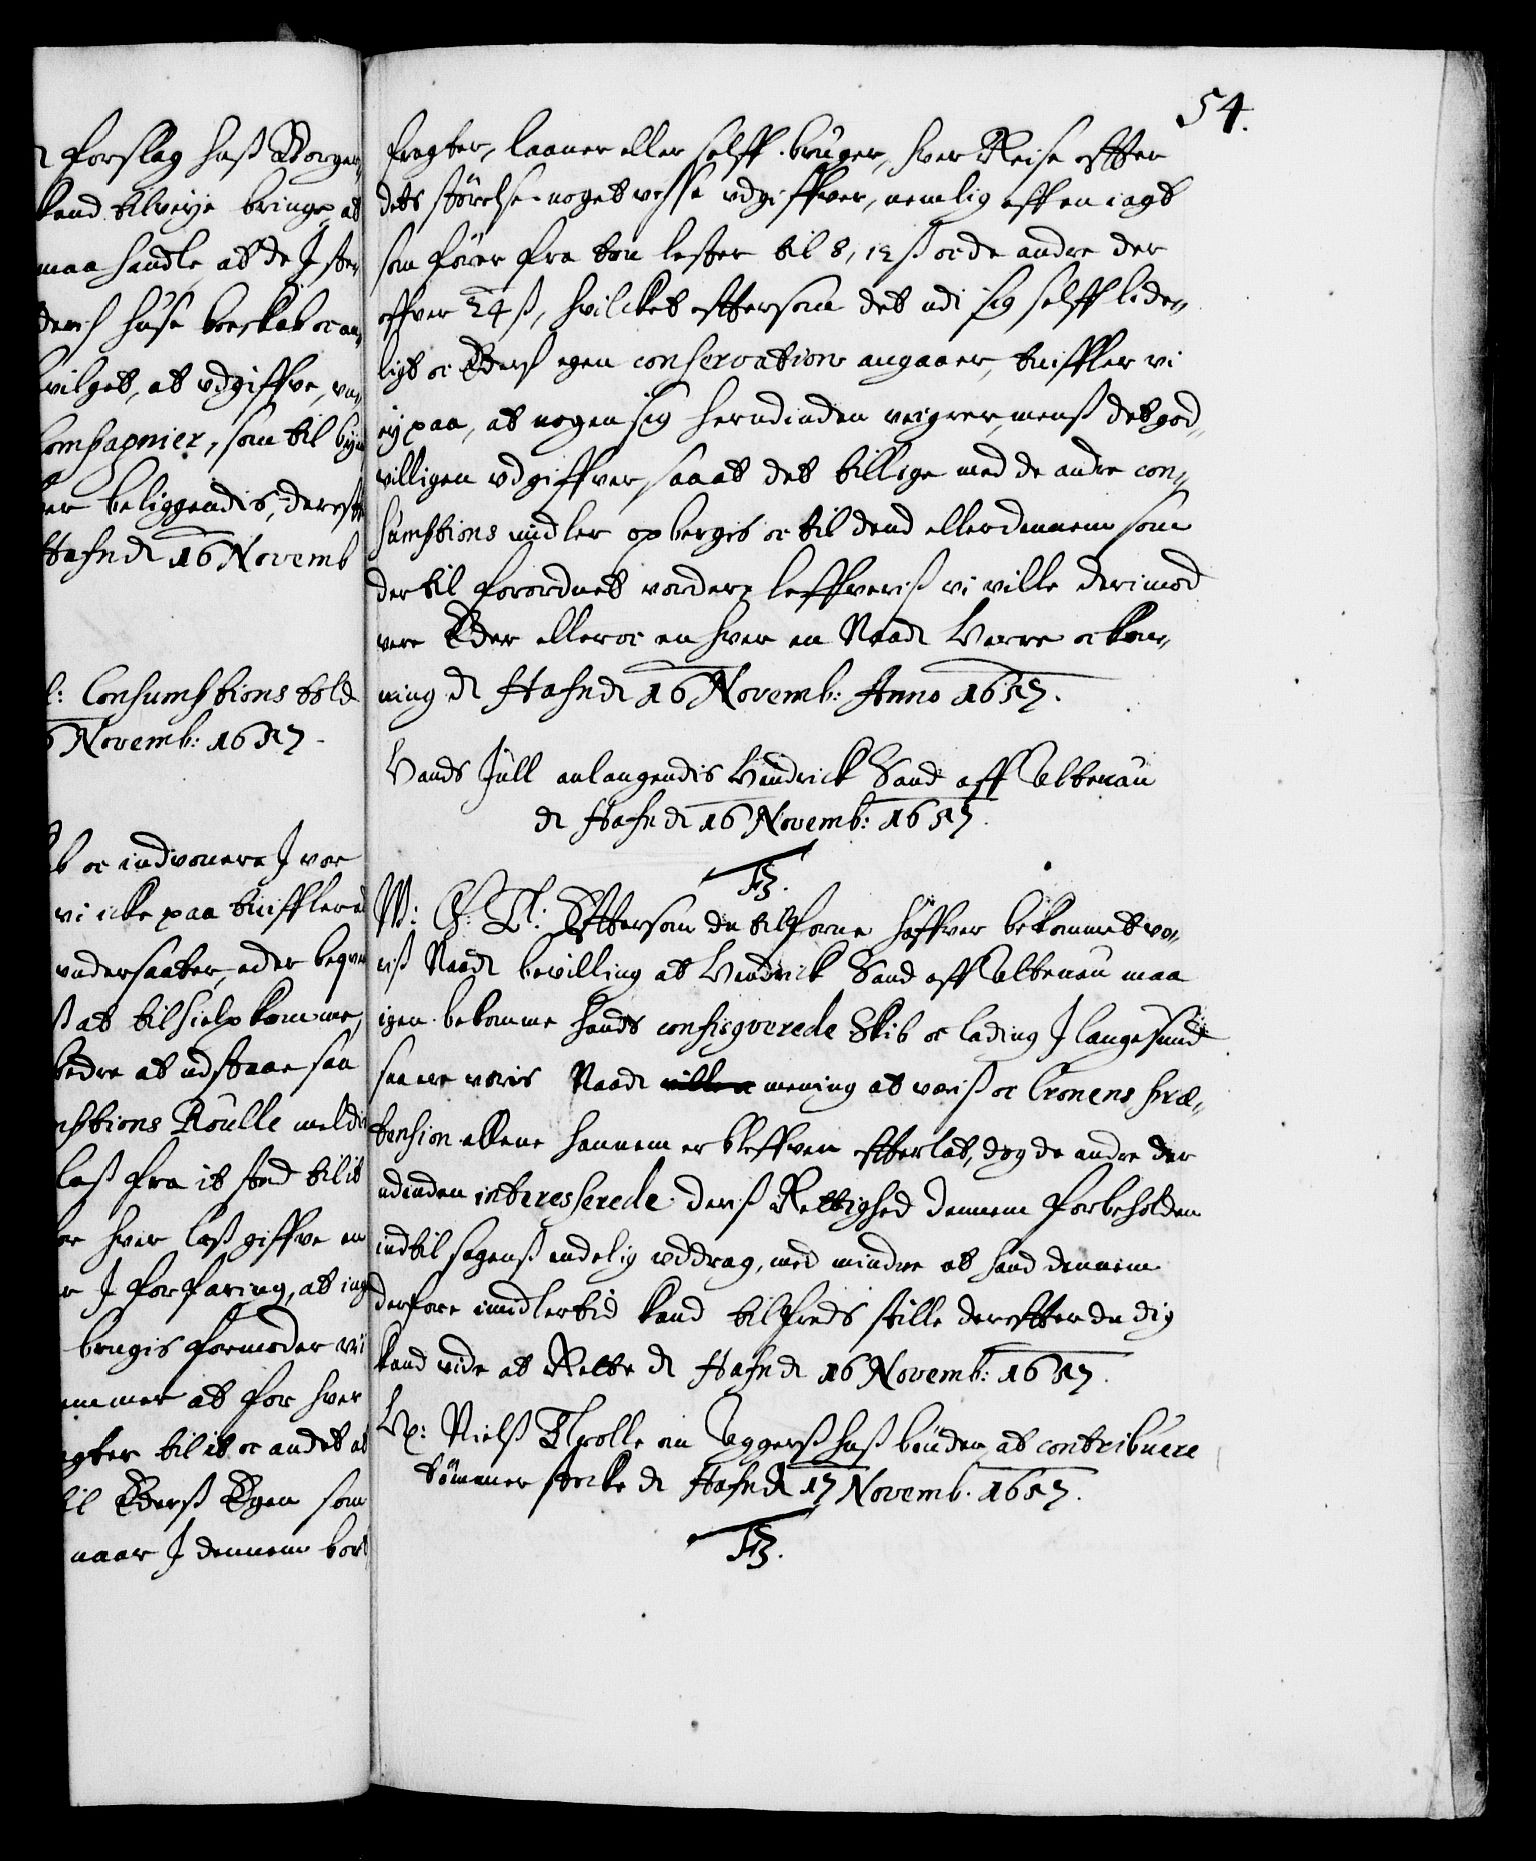 54.
forslag huß Borger,
kand tilveye bringe, at
maa handle, at de J ste,
deris huse boeskab oc an,
vilget, at udgiffve, un,
Compagnier, som til by
er beliggendis, dereff
Hafn d 16 Novemb
l: Consumptions told
6 Novemb: 1657.
oc indvonere J vor
vi icke paa tuiffler
undersaater, eder beqve
ß at til hielp komme,
bedre at udstaae saa
mptions Roulle meldi
laß fra it sted til it
for hver laß giffve en
J forfaring, at ing
brugis formoder vi
emmer at for hver
agter til it oc andet at
til Ederß Egen som
naar J dennem bort
fragter, laaner eller selff bruger, hver Reise effter
dets störelse noget visse udgiffver, nemlig aff en iagt
som förer fra tou lester til 8, 12 ß oc de andre der
offver 24 ß, hvilcket effter som det udi sig selff lide,
ligt oc Eders egen conservation angaaer, tuiffler vi
ey paa, at nogen sig herudinden veigrer, menß det god,
villigen udgiffver, saa at det billige med de andre con,
sumptions midler opbergis oc til dend eller dennem som
der til forordnet vorder leffveriß vi ville derimod
vere Eder eller oc en hver en Naadi Herre oc Kon,
ning d Hafn d 16 Novemb: Anno 1657.
Hands Jull anlangendis Hendrick Sand aff Altenau
d Hafn d 16 Novemb: 1657.
F3.
W: G: T: Effter som du tilforne haffver bekommet vo,
riß Naadi bevilling at Hendrick Sand aff Altenau maa
igen bekomme hands confisqverede Skib oc lading J langesund
saa er voris Naadi mening at voriß oc Cronens præ,
tension allene hannem er bleffven effterlat, dog de andre der
udinden interesserede deriß Rettighed dennem forbeholden
indtil sagenß endelig uddrag, med mindre at hand dennem
derfore imidlertid kand tilfreds stille dereffter du dig
kand vide at Rette d Hafn d 16 Novemb: 1657.
Nielß Trolle om Aggerßhuß bönder, at contribuere
tömmer stocke d Hafn d 17 Novemb. 1657.
F3.